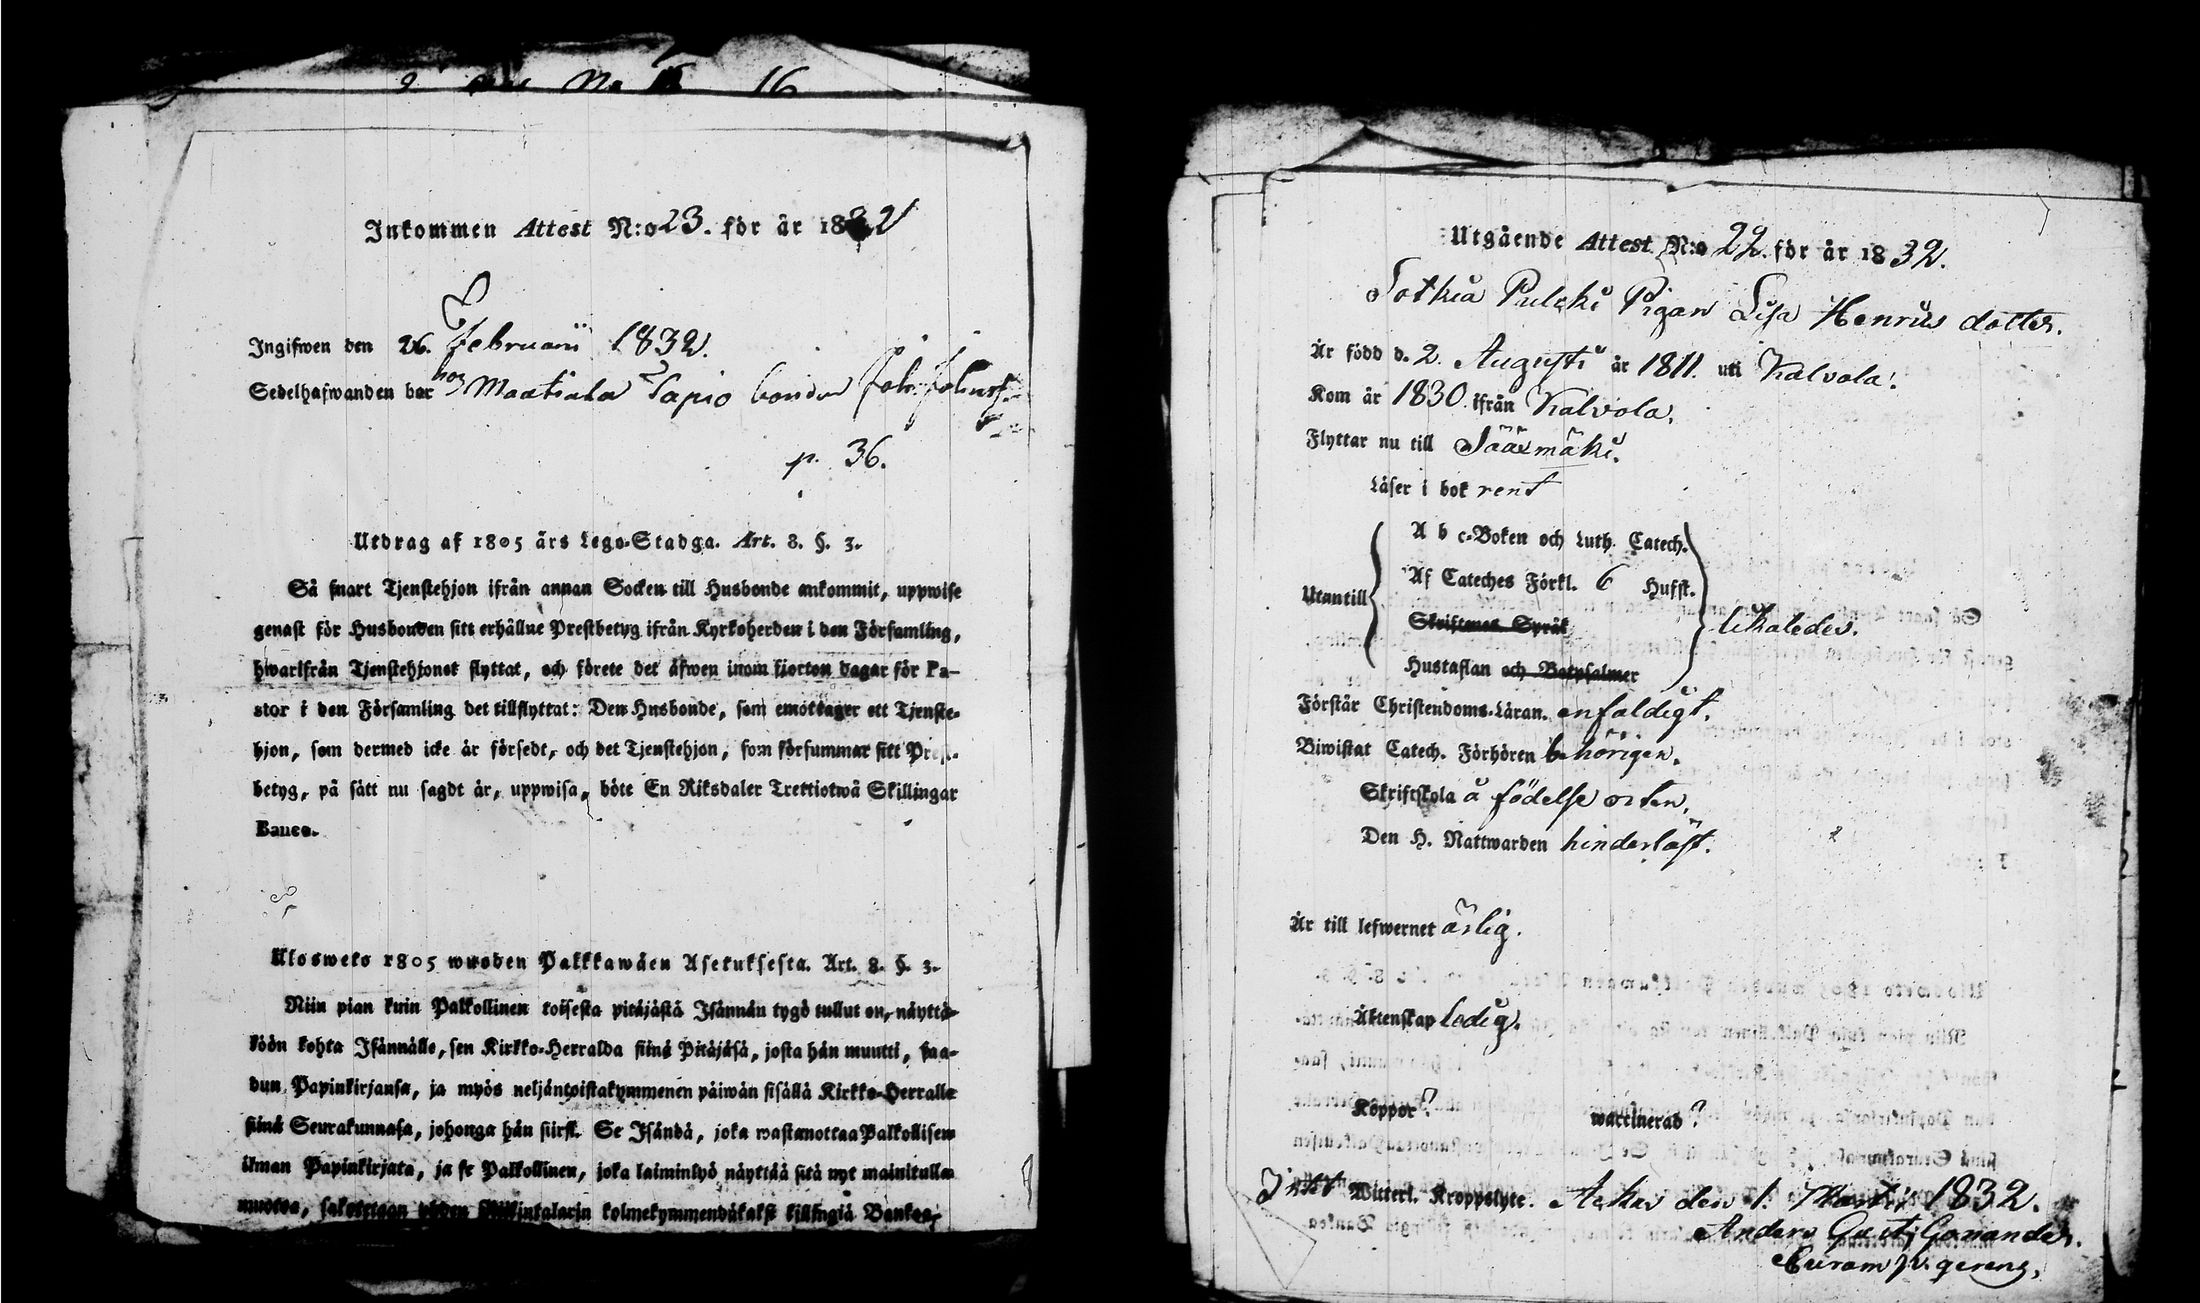 16
Inkommen Attest N:o 23. för år 1832
Ingifwen den 26. Februarii 1832.
Sedelhafwanden bor hos Maatiala Tapio bonden Joh: Johansf.
p. 36.
Utdrag af 1805 års Lego-Stadga. Art. 8. §. 3.
Så snart Tjenstehjon ifrån annan Socken till Husbonde ankommit, uppwise
genast för Husbonden sitt erhållne Prestbetyg ifrån Kyrkoherden i den Församling,
hwarifrån Tjenstehjonet flyttat, och förete det äfwen inom fiorton dagar för Pa-
stor i den Församling det tillflyttat: Den Husbonde, som emottager ett Tjenste-
hjon, som dermed icke är försedt, och det Tjenstehjon, som försummar sitt Prest-
betyg, på sätt nu sagdt är, uppwisa, böte En Riksdaler Trettiotwå Skillingar
Banco.
Ulosweto 1805 wuoden Palkkawäen Asetuksesta. Art. 8. §. 3.
Niin pian kuin Palkollinen toisesta pitäjästä Isännän tygö tullut on, näyttä-
köön kohta Isännälle, sen Kirkko-Herralda siinä Pitäjäsä, josta hän muutti, saa-
dun Papinkirjansa, ja myös neljäntoistakymmenen päiwän sisällä Kirkko-Herralle
siinä Seurakunnasa, johonga hän siirst. Se Isändä, joka wastanottaa Palkollisen
ilman Papinkirjata, ja se Palkollinen, joka laiminlyö näyttää sitä nyt mainitulla
muotoa, sakotetaan yhden Riikintalarin kolmekymmendäkaksi killingiä Bankoa.
Utgående Attest N:o 22. för år 1832.
Sotkia Pulcki Pigan Lisa Henrics dotter.
Är född d. 2. Augusti år 1811. uti Kalvola.
Kom år 1830. ifrån Kalvola.
Flyttar nu till Sääxmäki.
Läser i bok rent
A b c-Boken och Luth. Catech.
Af Cateches Förkl. 6 Hufst.
Utantill
Skriftenes Språk
likaledes.
Hustaflan och Botpsalmer
Förstår Christendoms-Läran. enfaldigt.
Biwistat Catech. Förhören behörigen.
Skriftskola å födelse orten.
Den H. Nattwarden hinderlöst.
Är till lefwernet ärlig.
Äktenskap ledig.
Koppor? waccinerad?
Intet Witterl. Kroppslyte. Ackas den 1. Martii 1832.
Anders Gust. Gonander.
Curam p. gerens.